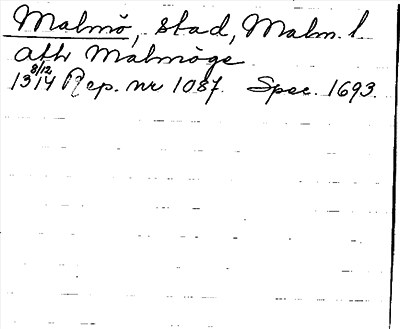 Malmö, stad, Malm. l
ath Malmöge
8/12
1314 Rep. nr 1087. Spec. 1693.